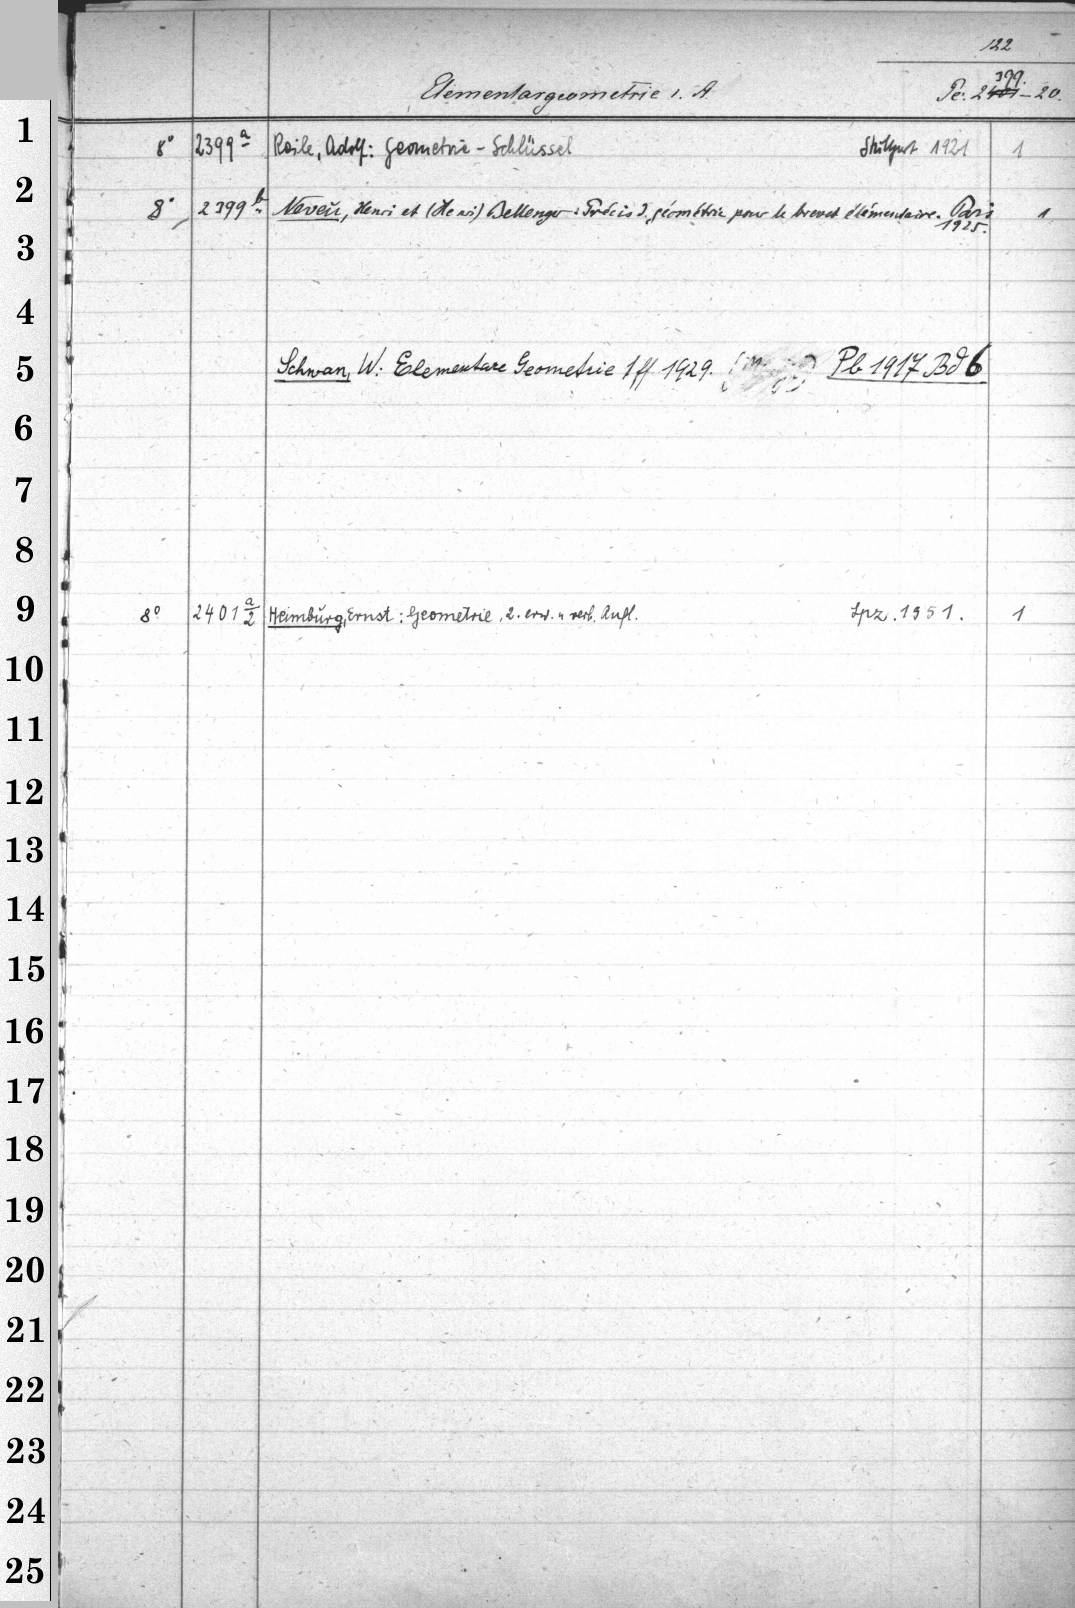 122
Elementargeometrie i. A.
399.
Pe. 2401 – 20.
1 8° 2399 a Roile, Adolf: Geometrie – Schlüssel Stuttgart 1921 1
2 8° 2399 b Neveu, Henri et (Henri) Bellenger: Précis d. géométrie pour le brevet élémentaire. Paris 1
1925.
3
4
5 Schwan, W: Elementare Geometrie 1 ff 1929. Pb 1917 Bd 6
6
7
8
9 8° 2401 a/2 Heimburg, Ernst: Geometrie, 2. erw. u verb. Aufl. Lpz. 1951. 1
10
11
12
13
14
15
16
17
18
19
20
21
22
23
24
25